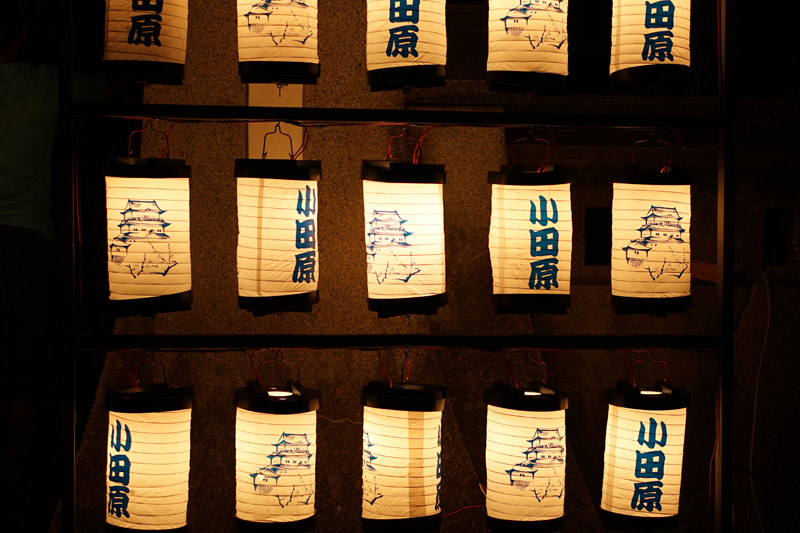 田原
田原
田原
小田原
小田原
小田原
小田原